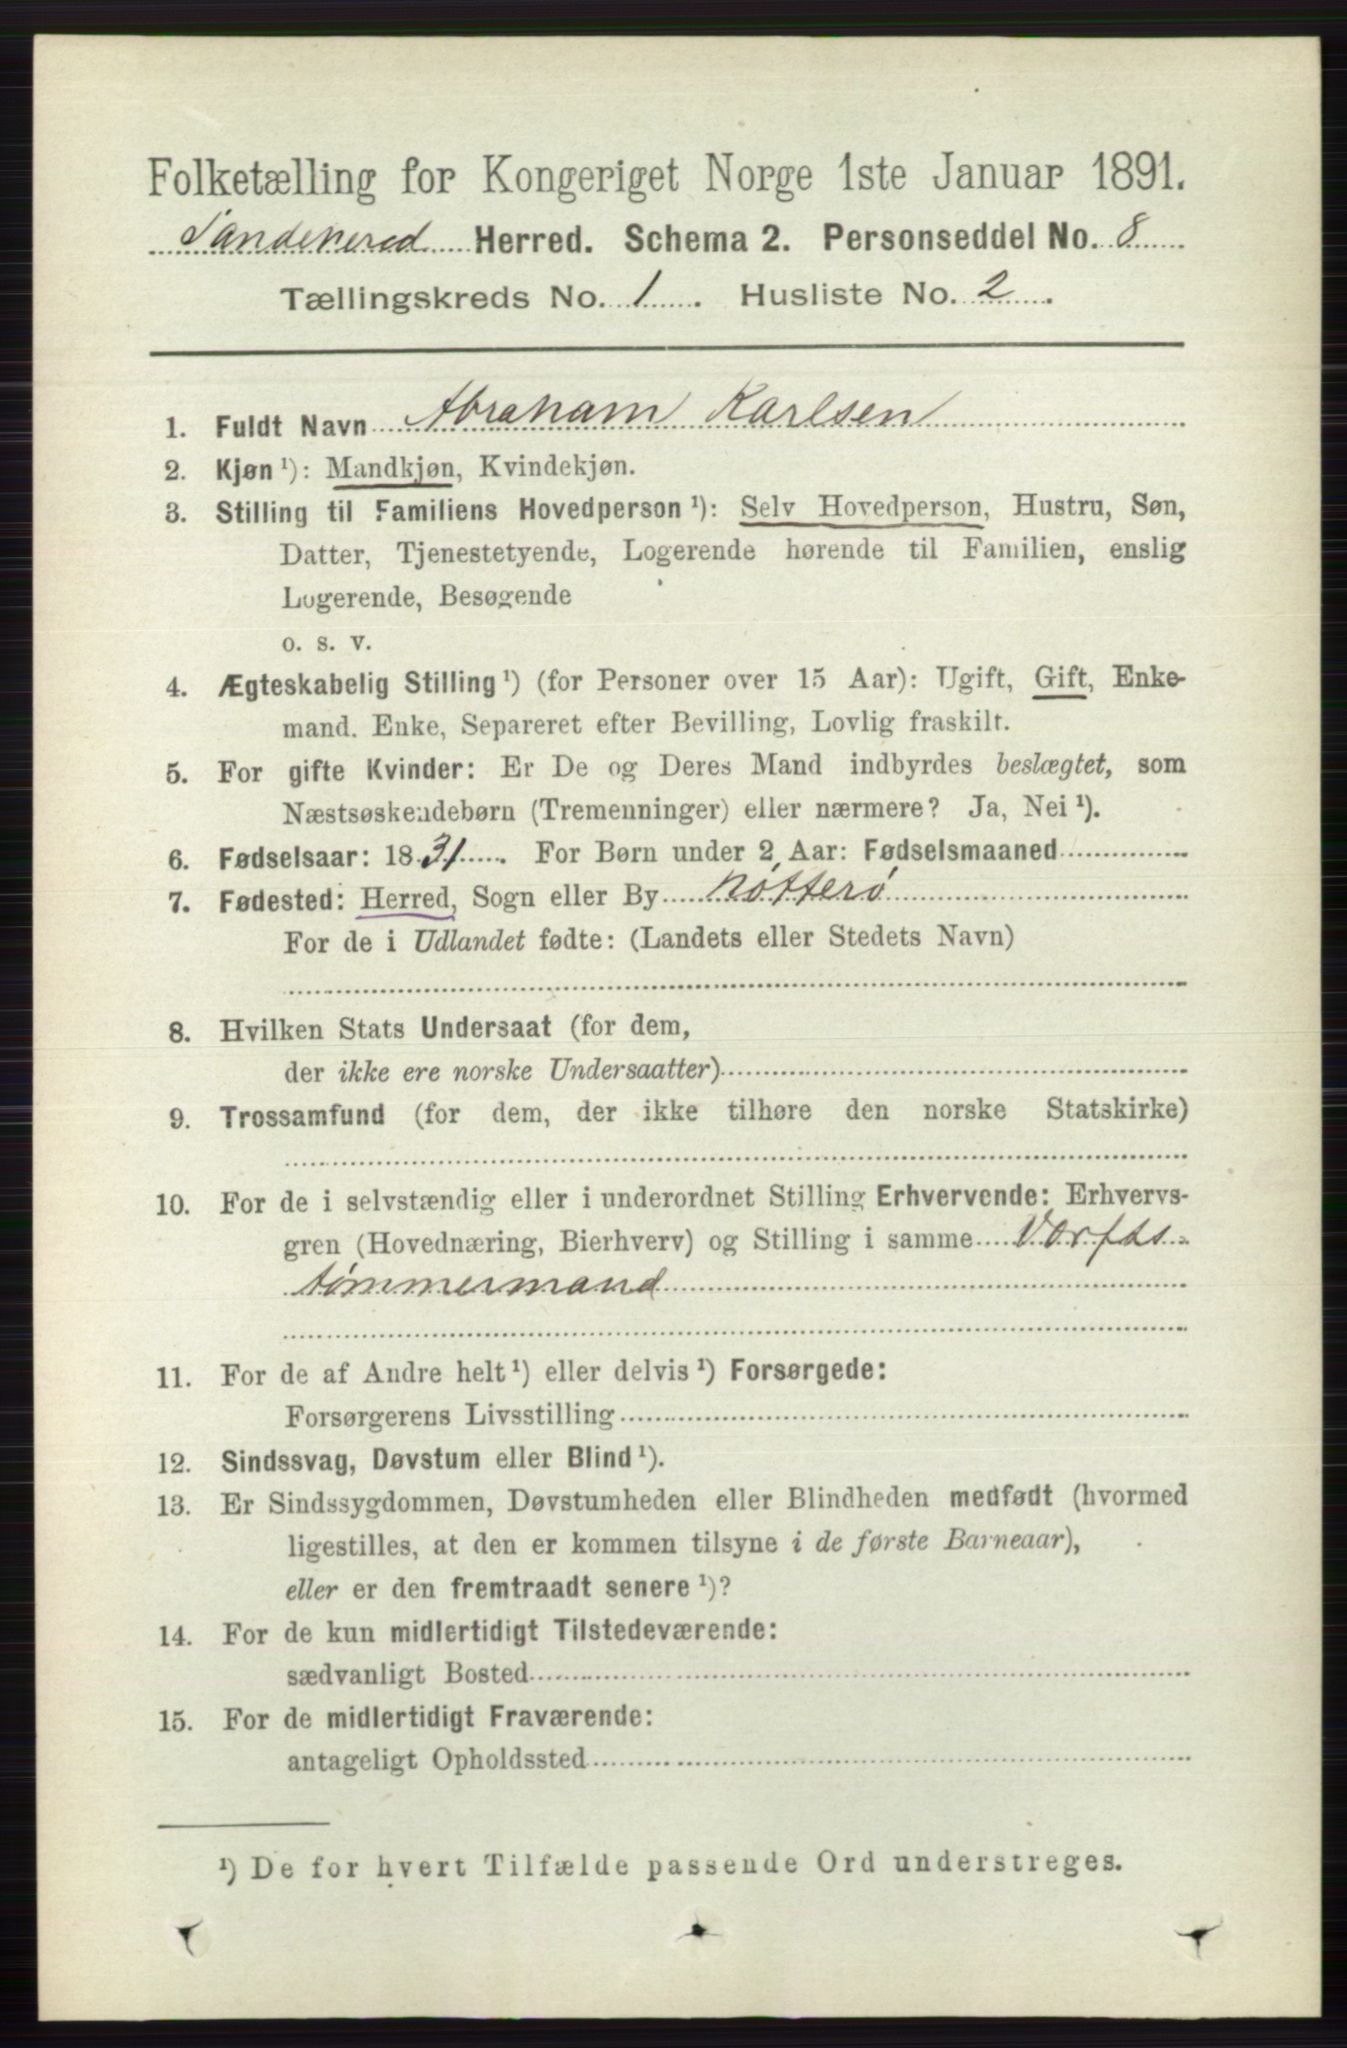 Folketælling for Kongeriget Norge 1ste Januar 1891.
Sandeherred Herred. Schema 2. Personseddel No. 8
Tællingskreds No. 1. Husliste No. 2.
1. Fuldt Navn Abraham Karlsen
2. Kjøn¹): Mandkjøn, Kvindekjøn.
3. Stilling til Familiens Hovedperson¹): Selv Hovedperson, Hustru, Søn,
Datter, Tjenestetyende, Logerende hørende til Familien, enslig
Logerende, Besøgende
o. s. v.
4. Ægteskabelig Stilling¹) (for Personer over 15 Aar): Ugift, Gift, Enke-
mand. Enke, Separeret efter Bevilling, Lovlig fraskilt.
5. For gifte Kvinder: Er De og Deres Mand indbyrdes beslægtet, som
Næstsøskendebørn (Tremenninger) eller nærmere? Ja, Nei¹).
6. Fødselsaar: 1831. For Børn under 2 Aar: Fødselsmaaned
7. Fødested: Herred, Sogn eller By Nötterö
For de i Udlandet fødte: (Landets eller Stedets Navn)
8. Hvilken Stats Undersaat (for dem,
der ikke ere norske Undersaatter)
9. Trossamfund (for dem, der ikke tilhøre den norske Statskirke)
10. For de i selvstændig eller i underordnet Stilling Erhvervende: Erhvervs-
gren (Hovednæring, Bierhverv) og Stilling i samme Verfts-
tømmermand
11. For de af Andre helt¹) eller delvis¹) Forsørgede:
Forsørgerens Livsstilling
12. Sindssvag, Døvstum eller Blind¹).
13. Er Sindssygdommen, Døvstumheden eller Blindheden medfødt (hvormed
ligestilles, at den er kommen tilsyne i de første Barneaar),
eller er den fremtraadt senere¹)?
14. For de kun midlertidigt Tilstedeværende:
sædvanligt Bosted
15. For de midlertidigt Fraværende:
antageligt Opholdssted
¹) De for hvert Tilfælde passende Ord understreges.